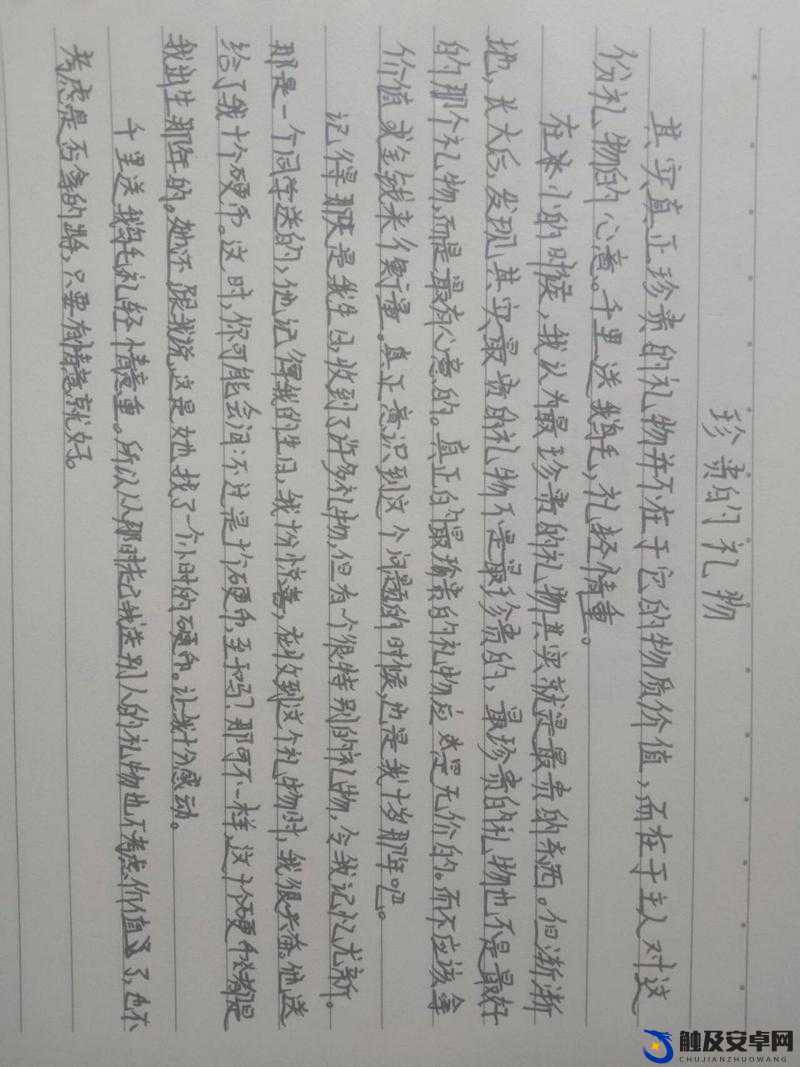 珍贵的礼物
其实真正珍贵的礼物并不在于它的物质价值，而在于主人对这
份礼物的心意。千里送鹅毛，礼轻情重。
在米小的时候，我认为最珍贵的礼物其实就是最贵的东西。但渐渐
地，长大后，发现其实最贵的礼物不是最珍贵的，最珍贵的礼物也不是最好
的那个礼物，而是最有心意的。真正的最珍贵的礼物应该是无价的。而不应该拿
价值或金钱来衡量。真正意识到这个问题的时候，也是我十岁那年吧。
记得那天是我生日，收到了许多礼物，但有个很特别的礼物，令我记忆尤新。
那是一个同学送的，他记得我的生日，我十分惊喜，在收到这个礼物时，我很兴奋。他送
给了我十个硬币。这时，你可能会问：不过是十个硬币至于吗？那可不一样，这十个硬币都是
我出生那年的。她还跟我说，这是她找了一个小时的硬币。让我十分感动。
千里送鹅毛礼轻情意重。所以从那时起我送别人的礼物也不考虑价值了，也不
考虑是否等的路，只要有情意就好。
触及安卓网
CHUJIANZHUOWANG